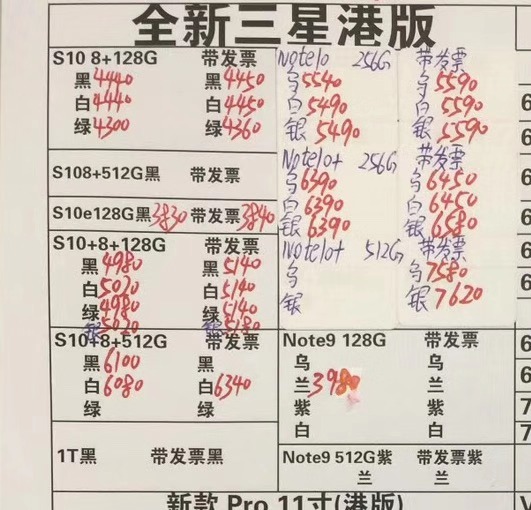 全新三星港版
S10 8+128G 带发票
黑4440 黑4450
白4440 白4450
绿4300 绿4360
S108+512G黑 带发票
S10e128G黑3830 带发票3840
S10+8+128G 带发票
黑4980 黑5140
白5020 白5140
绿4980 绿5140
银5020 银5280
S10+8+512G 带发票
黑6100 黑
白6080 白6340
绿 绿
1T黑 带发票黑
Note10 256G 带发票
乌5540 乌5590
白5490 白5590
银5490 银5590
Note10+ 256G 带发票
乌6390 乌6450
白6390 白6450
银6390 银6580
Note10+ 512G 带发票
乌 乌7580
银 银7620
Note9 128G 带发票
乌 乌
兰3980 兰
紫 紫
白 白
Note9 512G紫 带发票紫
兰 兰
新款 Pro 11寸(港版)